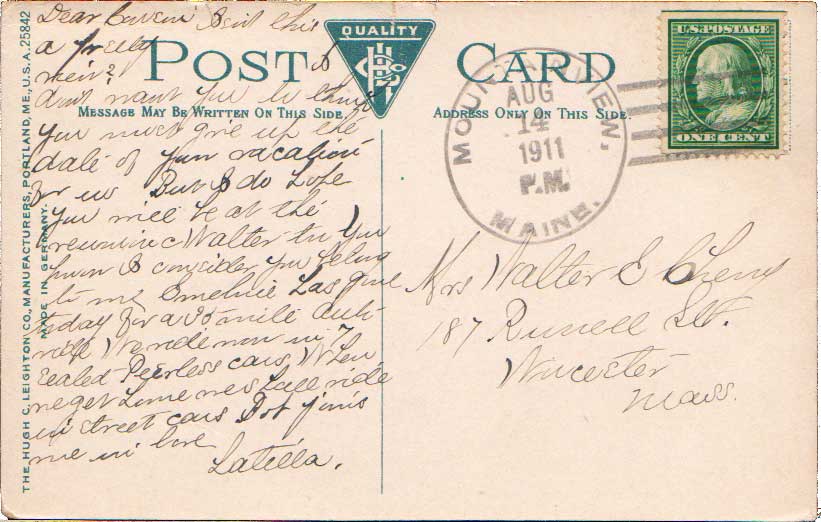 Dear Cousin Isnt this
a pretty
view? I
dont want you to think
you must give up the
date of your vacation
for us But I do hope
you will be at the
reunion Walter too you
know I consider you belong
to me. has gone
today for a 35 mile auto
ride We ride now in 7
seated Peerless cars, When
we get home we'll ride
in street cars Bot joins
me in love
Latilla.
POST CARD
QUALITY
MESSAGE MAY BE WRITTEN ON THIS SIDE.
ADDRESS ONLY ON THIS SIDE.
MAINE.
AUG
14
1911
P.M.
U.S. POSTAGE
ONE CENT
Mrs Walter E Cheny
187 Russell St.
Worcester
Mass.
THE HUGH C. LEIGHTON CO., MANUFACTURERS, PORTLAND, ME., U.S.A. 25842
MADE IN GERMANY.